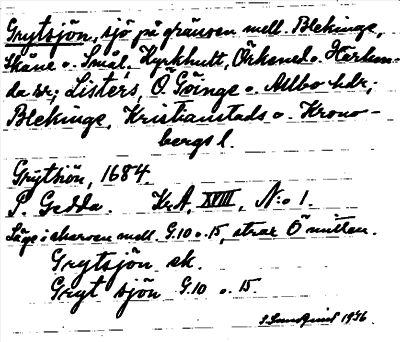 Grytsjön, sjö på gränsen mell. Blekinge,
Skåne o. Smål., Kyrkhult, Örkened o. Härlun-
da sr; Listers, Ö Göinge o. Allbo hdr;
Blekinge, Kristianstads o. Krono-
bergs l.
Grytsiön, 1684.
P. Gedda. Kr.A. XVIII, N:o 1.
Läge i skarven mell. G.10 o. 15, strax Ö mitten.
Grytsjön ek.
Gryt sjön G.10 o. 15
1936